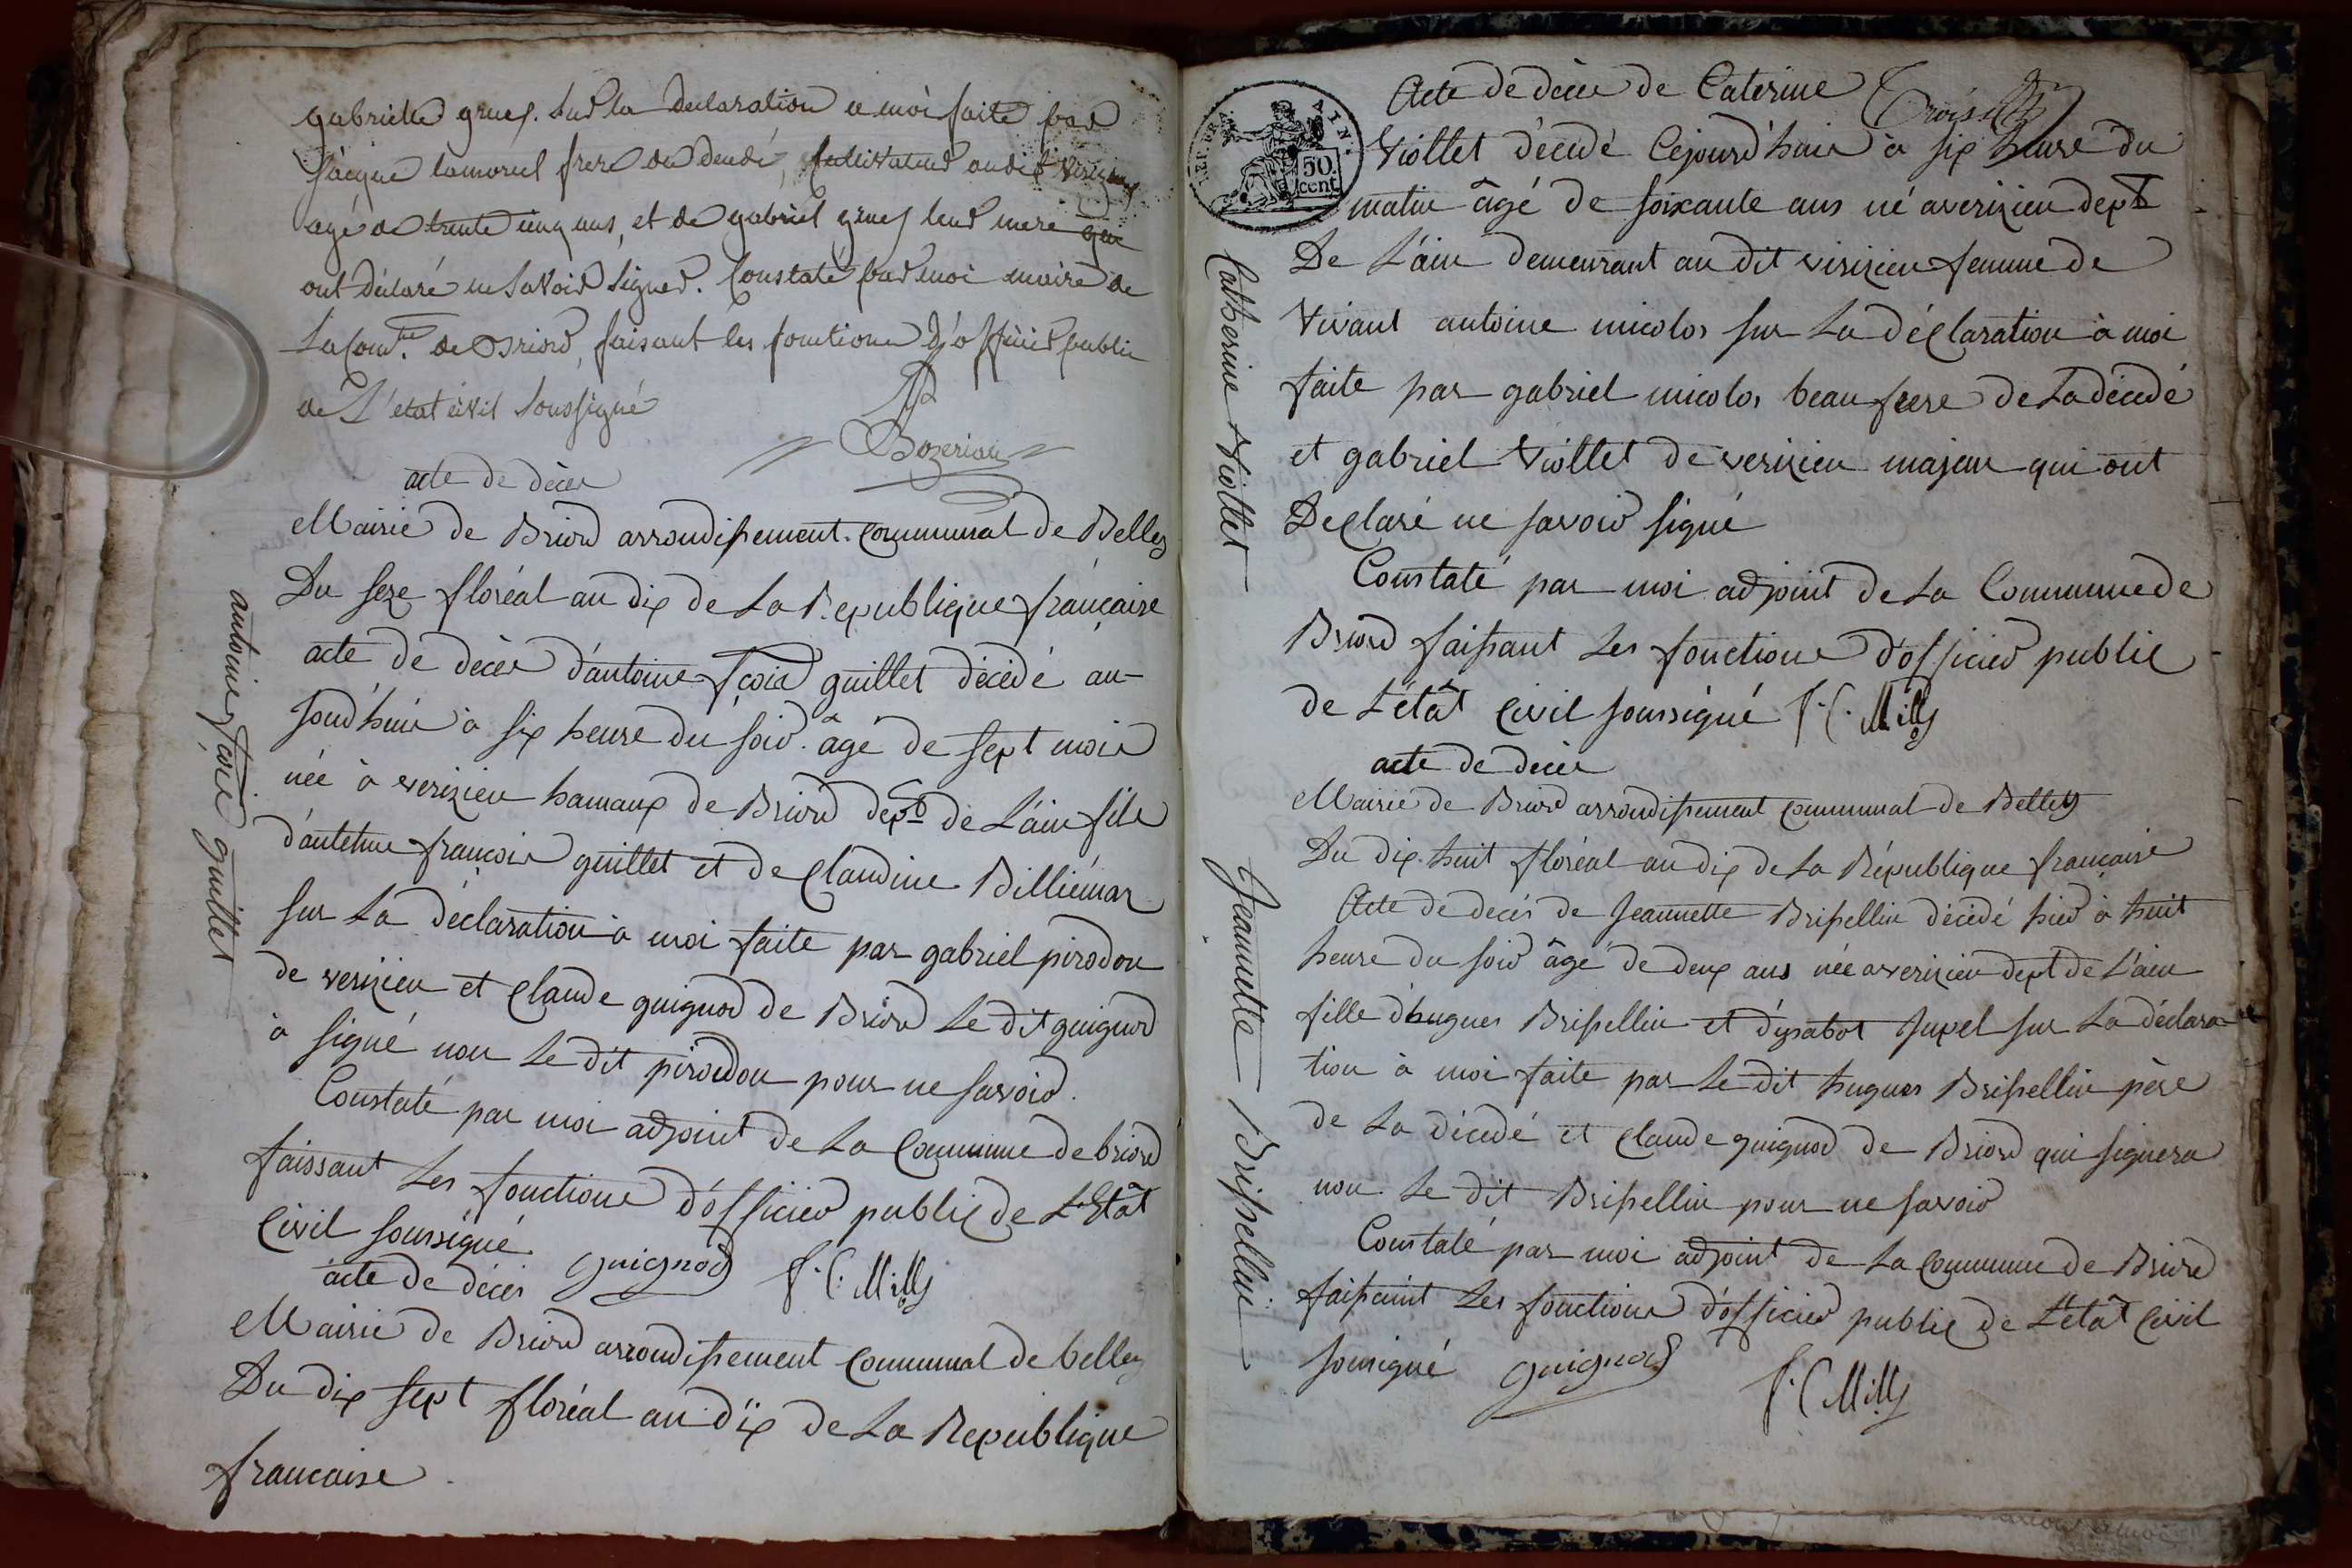 gabrielle gruef. sur la declaration a moi faite par
Jacque lamorail frere du decedé, cultivateur audit verizieu
agé de trente cinq ans, et de gabriel gruef leur mere qui
ont déclaré ne savoir signer. Constaté par moi maire de
la comne. de Briord, faisant les fonctions d'officier public
de L'etat civil soussigné
Bozerian
acte de décès
Mairie de Briord arrondissement communal de Belley
Du seze floréal an dix de La Republique française
acte de décès d'antoine fçois guillet décédé au-
jourd'huis à six heure du soir. âgé de sept mois
née à verizieu hamaux de Briord dept de L'ain fils
d'antetnne françois guillet et de Claudine Billiémar
sur La déclaration à moi faite par gabriel pirodon
de verizieu et Claude guignod de Briord Le dit guignod
à signé non Le dit pirodon pour ne savoir.
Constaté par moi adjoint de La Commune de briord
faissant Les fonctions d'officier public de L'Etât
Civil soussigné. guignod f. C. Milly
acte de décès
Mairie de Briord arrondissement communal de belley
Du dix sept floréal an dix de La Republique
francaise.
antoine fçois guillet
REP. FRA. AIN.
50
cent
Acte de décès de Caterine
Viollet décédé Cejourd'huis à six heure du
matin âgé de soixante ans né a verizieu dept
De L'ain demeurant au dit virizieu femme de
Vivant antoine micolos sur La déClaration à moi
faite par gabriel micolos beau frere de La décédé
et gabriel Viollet de verizieu majeur qui ont
DeClaré ne savoir signé
Constaté par moi adjoint de La Commune de
Briord faissant Les fonctions d'officier public
de L'étât Civil soussigné f. C. Milly
Catherine Viollet
acte de décès
Mairie de Briord arrondissement communal de Belley
Du dix. huit floréal an dix de La République francaise
Acte de decès de Jeannette Brissellin décédé hier à huit
heure du soir âgé de deux ans née a verizieu dept de L'ain
fille d'hugues Brissellin et d'ysabot Jupel sur La déclara
tion à moi faite par Le dit hugues Brissellin père
de La dicédé et Claude guignod de Briord qui signera
non Le dit Brissellin pour ne savoir
Constaté par moi adjoint de La Commune de Briord
faissant Les fonctions d'officier public de L'étât Civil
soussigné guignod f. C Milly
Jeannette Brissellin